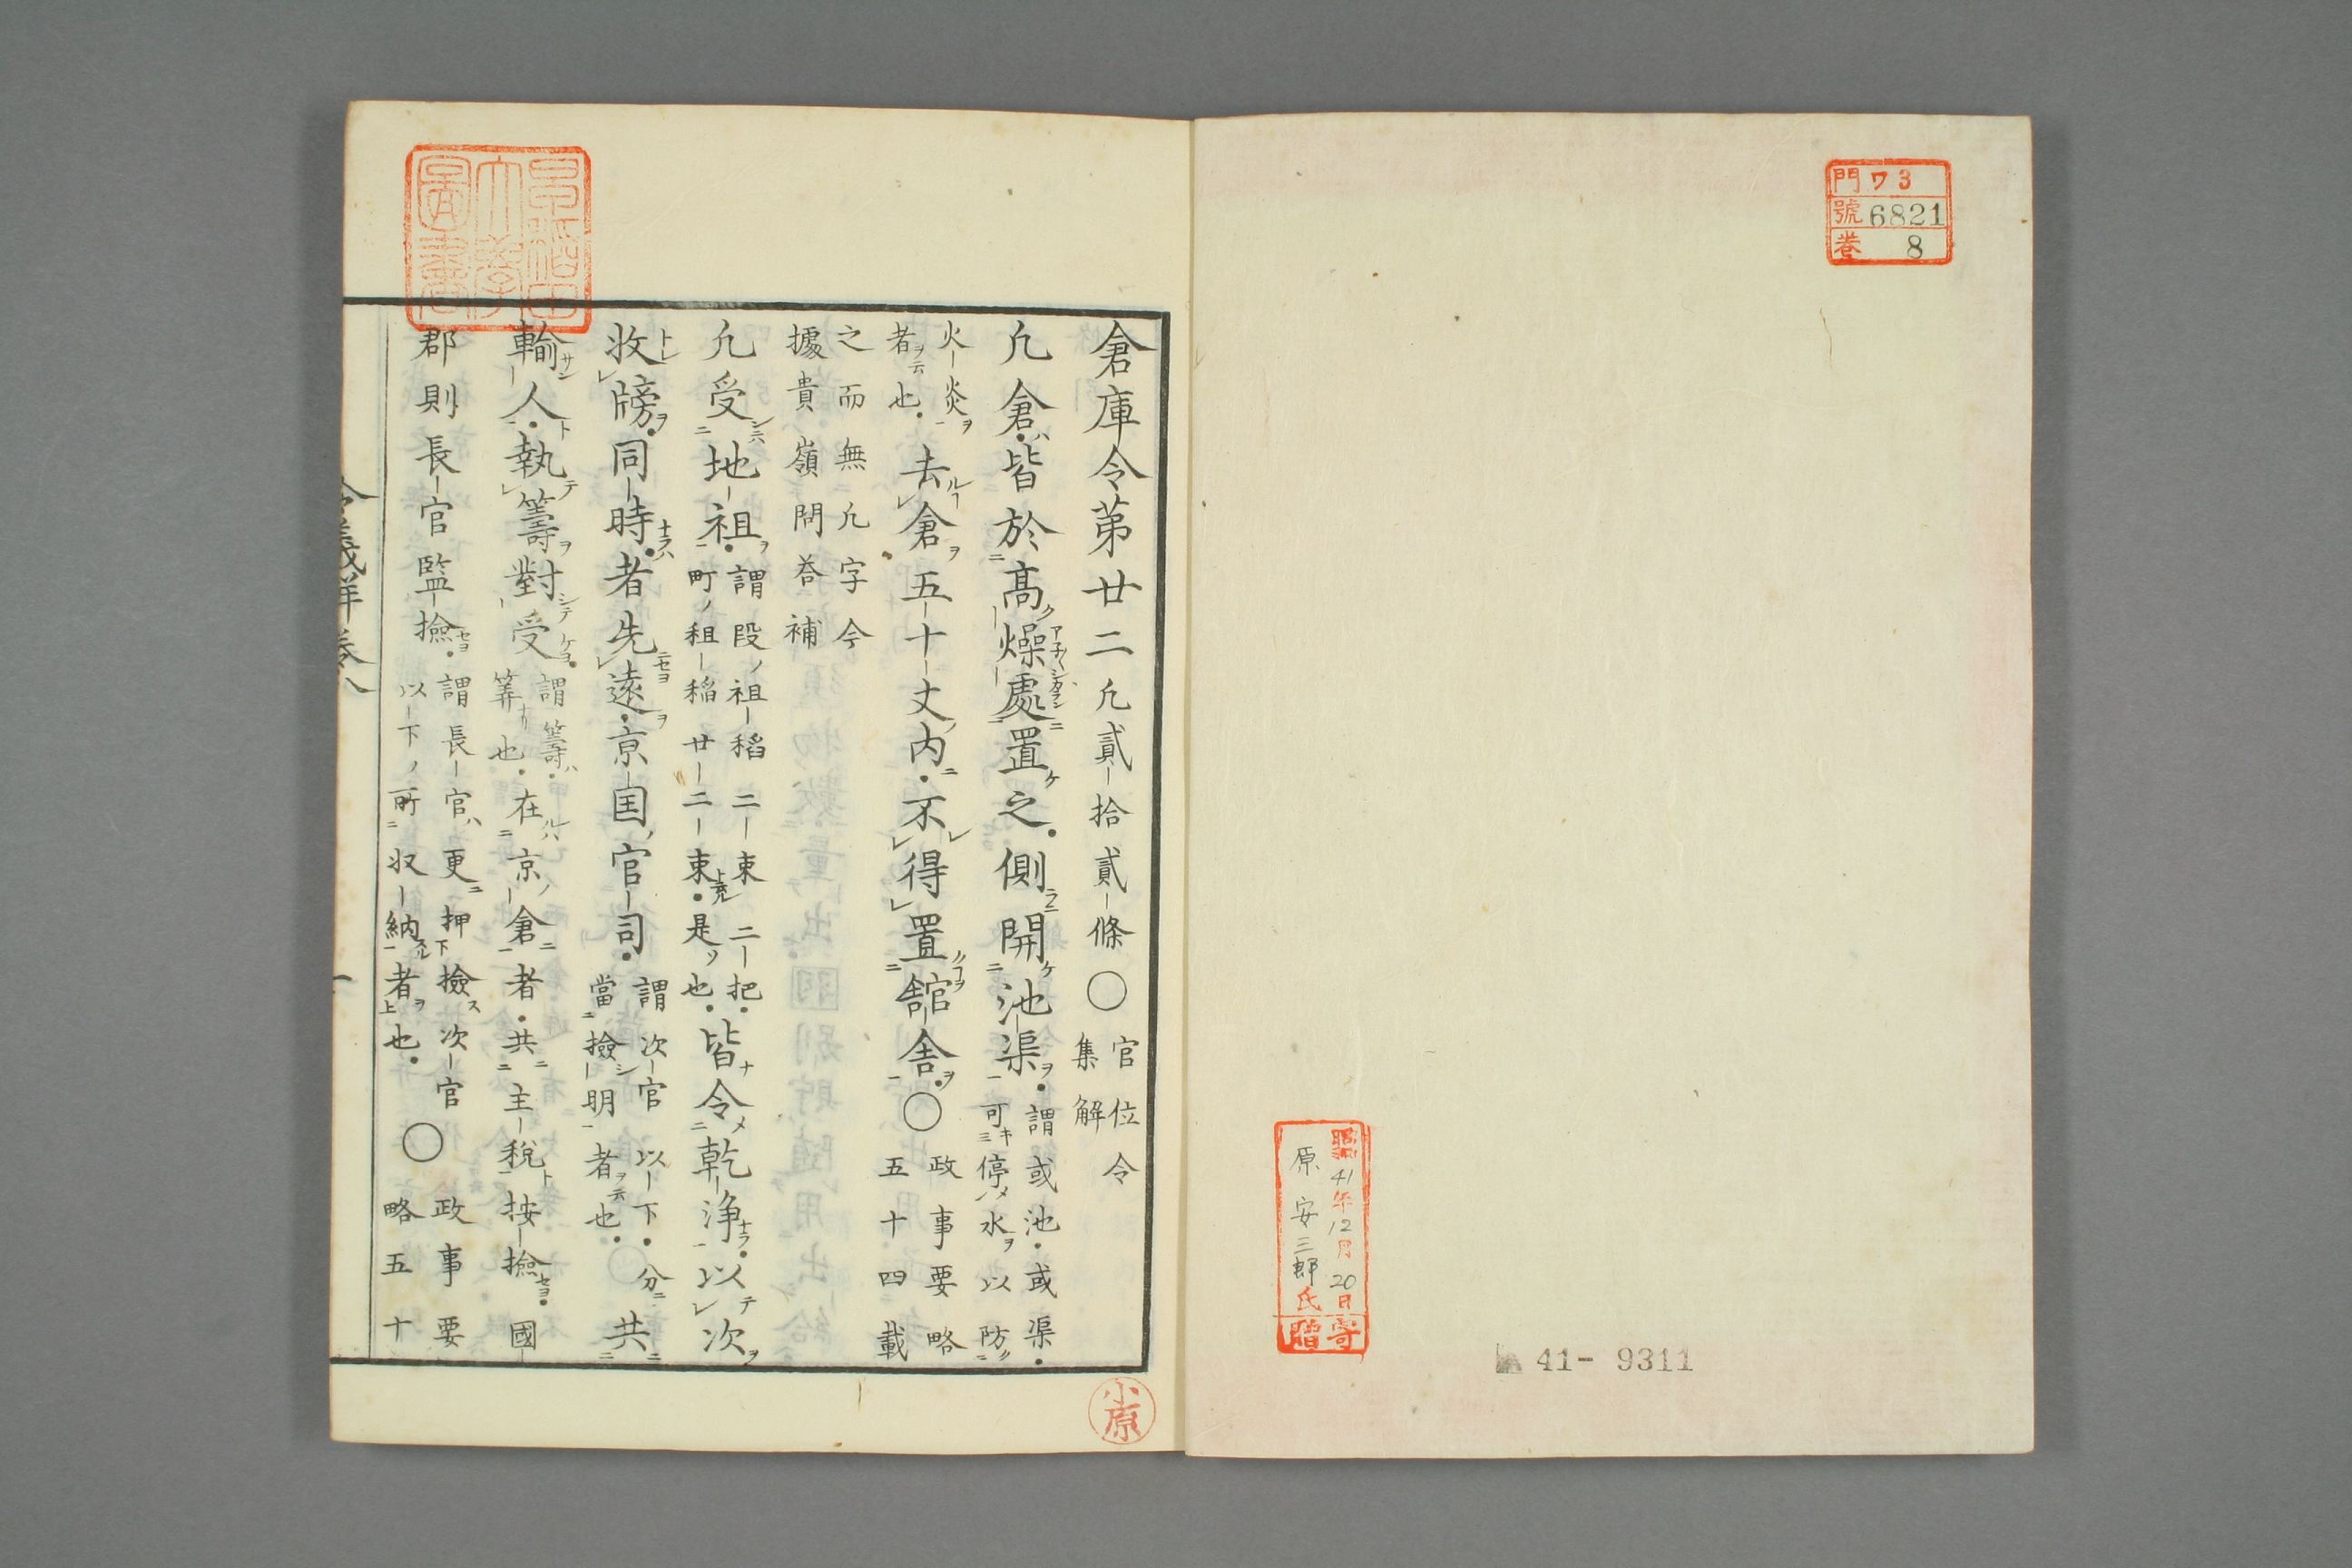 門 ワ3
號 6821
巻 8
昭 41年12月20日
原安三郎氏
寄贈
41- 9311
倉庫令第廿二凢貳拾貳條〇官位令
集解
凢倉皆於高燥處置之側開池渠謂或池或渠
可停水以防
火炎
者也去倉五十丈內不得置舘舍〇政事要略
五十四載
之而無凢字今
據貴嶺問荅補
凢受地租謂段租稻二束二把
町租稲廿二束是也皆令乾浄以次
收牓同時者先遠京国官司謂次官以下分
當撿明者也〇共
輸人執籌對受謂籌
筭也在京倉者共主稅按撿國
郡則長官監撿謂長官更押撿次官
以下所収納者也〇政事要
略五十
小原